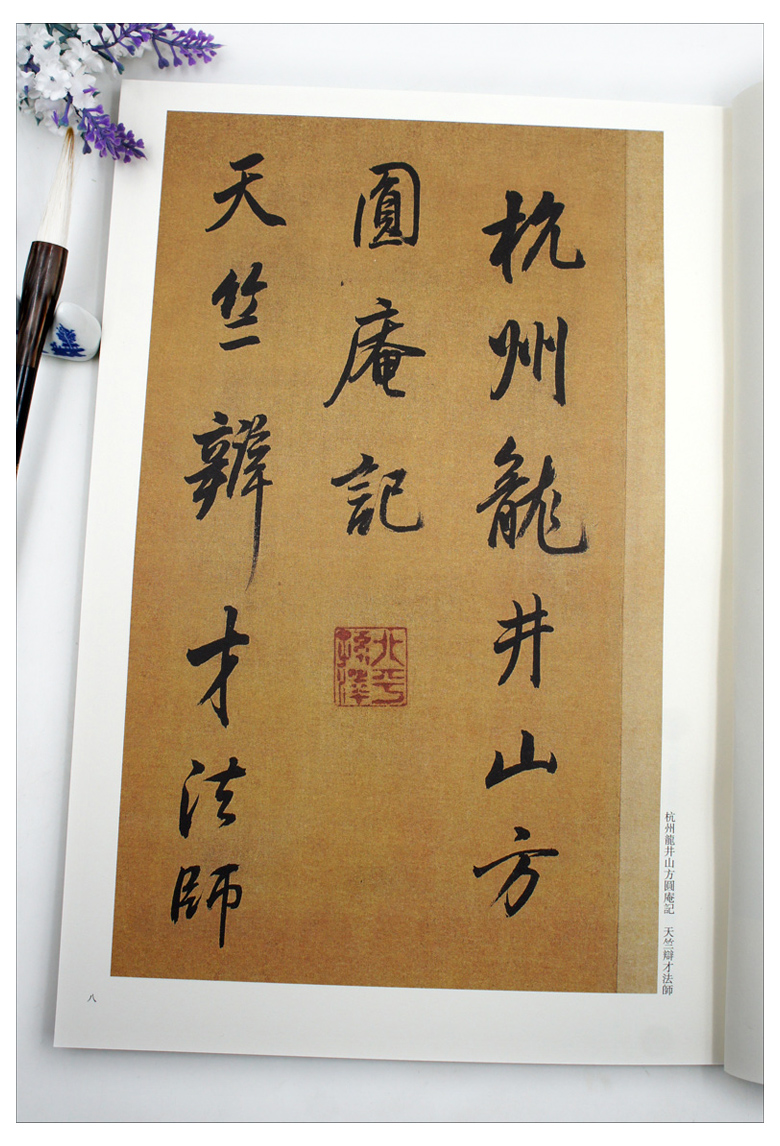 杭州龍井山方
圓庵記
天竺辯才法師
杭州龍井山方圓庵記 天竺辯才法師
八